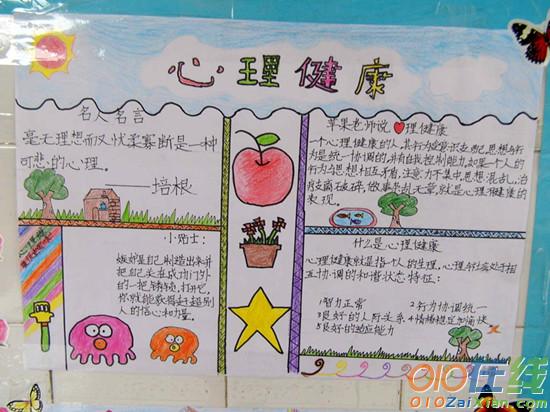 心理健康
名人名言
毫无理想而又忧柔寡断是一种
可悲的心理。
——培根
小贴士:
嫉妒是自己制造出来并
把自己关在成功门外
的一把锈锁,打开它,
你就能获得赶超别
人的信心和力量。
苹果老师说 理健康
一个心理健康的人,其行为受意识支配,思想与行
为是统一协调的,并有自我控制能力,如果一个人的
行为与思想相互矛盾,注意力不集中,思想混乱,语
言支离破碎,做事杂乱无章,就是心理不健康的
表现。
什么是心理健康
心理健康就是指个人的生理,心理与社会处于相
互协调的和谐状态,特征:
1智力正常 2行为协调统一
3良好的人际关系 4情绪稳定与愉快
5良好的适应能力
010在线
010ZaiXian.com